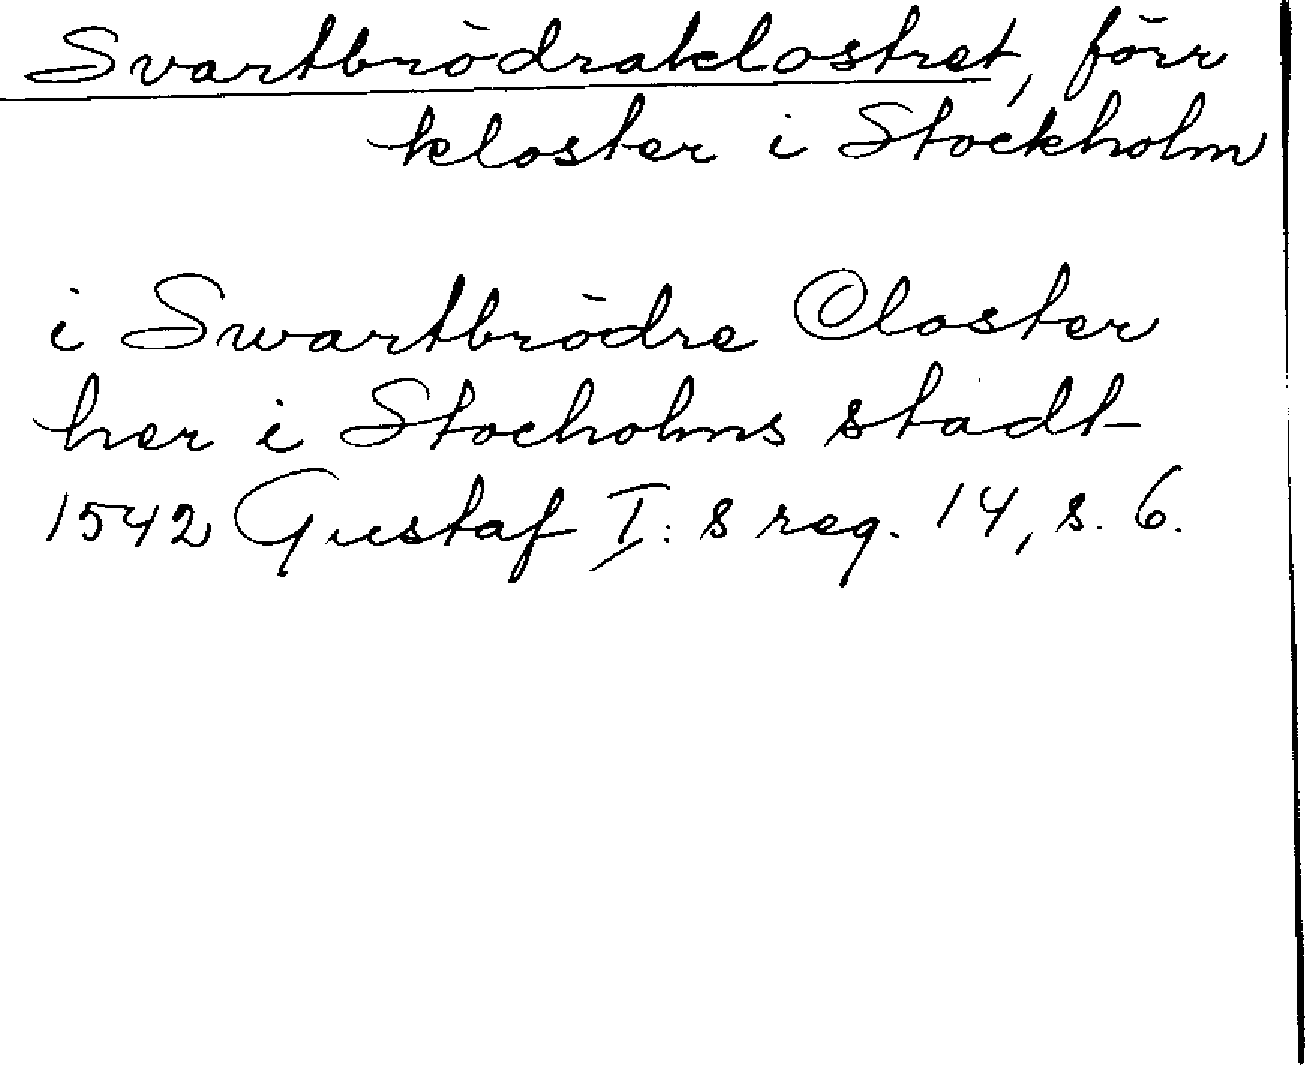 Svartbrödraklostret, förr
kloster i Stockholm
i Swartbrödre Closter
her i Stocholms stadt
1542 Gustaf I:s reg. 14, s. 6.